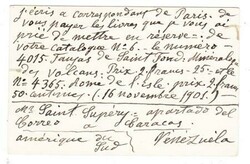 J'écris a correspondant de Paris - de
vous payer les livres que je vous ai
prié de mettre en réserve: de
votre Catalogue Nº 6. le numero -
4015. Faujas de Saint Fond, Mineralogie
des Volcans. Prix 2 francs - 25. et le
Nº 4365. Rome de l'Isle. prix 2 francs
50 centimes. (16 novembre 1905.)
Mr Saint Supéry - apartado del
Correo a Caracas -
amérique du Sud Venezuela